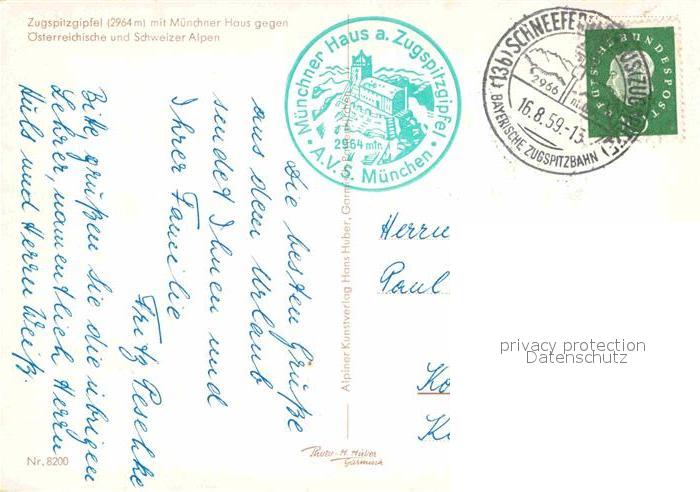 Zugspitzgipfel (2964 m) mit Münchner Haus gegen
Österreichische und Schweizer Alpen
Münchner Haus a. Zugspitzgipfel
2964 mtr.
A.V.S. München
(13b) SCHNEEFE
2966
16.8.59.-13
BAYERISCHE ZUGSPITZBAHN
DEUTSCHE BUNDESPOST
Die besten Grüße
aus dem Urlaub
sendet Ihnen und
Ihrer Familie
Fritz Peschke
Bitte grüßen Sie die übrigen
Lehrer, namentlich Herrn
Hüls und Herrn Weiß.
Alpiner Kunstverlag Hans Huber, Garmisch-Partenkirchen
Herrn
Paul
Ko
K
privacy protection
Datenschutz
Nr. 8200
Photo-H. Huber
Garmisch